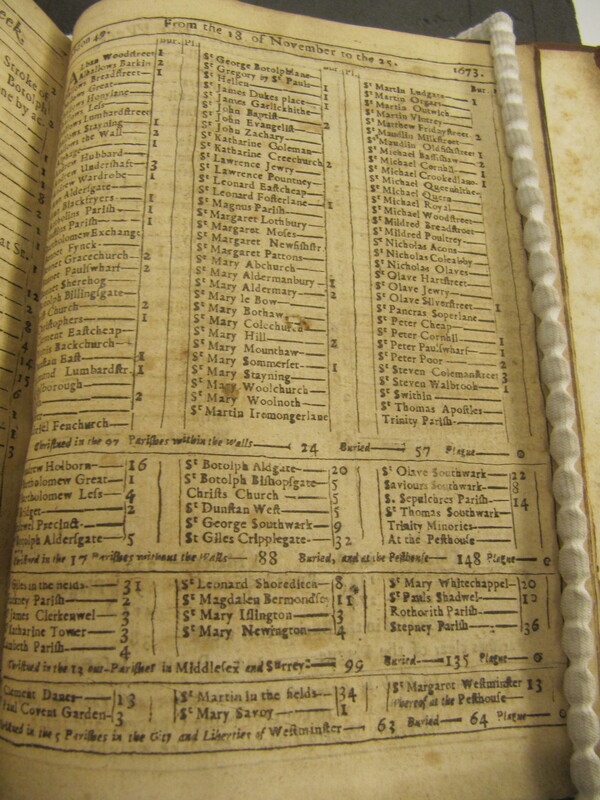 From the 18 of November to the 25. 1673.
Woodstreet 1
Allhallows Barkin 2
Breadstreet 1
Great
Honylane
Less
Lumbardstreet
Stayning 1
the Wall 2
Hubbard
Undershaft 3
Wardrobe 1
Aldersgate
Blackfryers 1
Parish 1
Parish 1
Exchange
Fynck
Gracechurch 2
Paulswharf 2
Sherehog
Billingsgate
Church 2
1
Eastcheap
Backchurch
East 1
Lumbardstr. 1
borough
2
Fenchurch
St George Botolphlane
St Gregory by St Pauls 1
St Hellen 1
St James Dukes place 1
St James Garlickhithe
St John Baptist 2
St John Evangelist
St John Zachary
St Katharine Coleman
St Katharine Creechurch 2
St Lawrence Jewry
St Lawrence Pountney
St Leonard Eastcheap
St Leonard Fosterlane 1
St Magnus Parish
St Margaret Lothbury
St Margaret Moses
St Margaret Newfishstr.
St Margaret Pattons
St Mary Abchurch
St Mary Aldermanbury 1
St Mary Aldermary 2
St Mary le Bow
St Mary Bothaw
St Mary Colechurch
St Mary Hill 2
St Mary Mounthaw
St Mary Somerset 1
St Mary Stayning
St Mary Woolchurch
St Mary Woolnoth
St Martin Iremongerlane
Bur.
St Martin Ludgate
St Martin Orgars 1
St Martin Outwich
St Martin Vintrey
St Matthew Fridaystreet 2
St Maudlin Milkstreet
St Maudlin Oldfishstreet 1
St Michael Bassishaw 2
St Michael Cornhil 1
St Michael Crookedlane 1
St Michael Queenhithe
St Michael Quern
St Michael Royal
St Michael Woodstreet
St Mildred Breadstreet
St Mildred Poultrey
St Nicholas Acons
St Nicholas Coleabby
St Nicholas Olaves
St Olave Hartstreet
St Olave Jewry
St Olave Silverstreet 1
St Pancras Soperlane
St Peter Cheap
St Peter Cornhil 1
St Peter Paulswharf 1
St Peter Poor 2
St Steven Colemanstreet 3
St Steven Walbrook 1
St Swithin
St Thomas Apostles
Trinity Parish
Christned in the 97 Parishes within the Walls 24 Buried 57 Plague 0
Holborn 16
Great 1
Bartholomew Less 4
Bridget 2
Precinct
Botolph Aldersgate 5
St Botolph Aldgate 20
St Botolph Bishopsgate 5
Christs Church 5
St Dunstan West 5
St George Southwark 9
St Giles Cripplegate 32
St Olave Southwark 22
Saviours Southwark 8
S. Sepulchres Parish 14
St Thomas Southwark
Trinity Minories
At the Pesthouse
in the 17 Parishes without the Walls 88 Buried, and at the Pesthouse 148 Plague 0
Giles in the fields 31
Parish 2
James Clerkenwel 3
Katharine Tower 3
Parish 4
St Leonard Shoreditch 8
St Magdalen Bermondsey 11
St Mary Islington 3
St Mary Newington 4
St Mary Whitechappel 20
St Pauls Shadwel 12
Rothorith Parish
Stepney Parish 36
Christned in the 12 out-Parishes in Middlesex and Surrey 99 Buried 135 Plague 0
Clement Danes 13
Paul Covent Garden 3
St Martin in the fields 34
St Mary Savoy 1
St Margaret Westminster 13
whereof at the Pesthouse
Christned in the 5 Parishes in the City and Liberties of Westminster 63 Buried 64 Plague 0